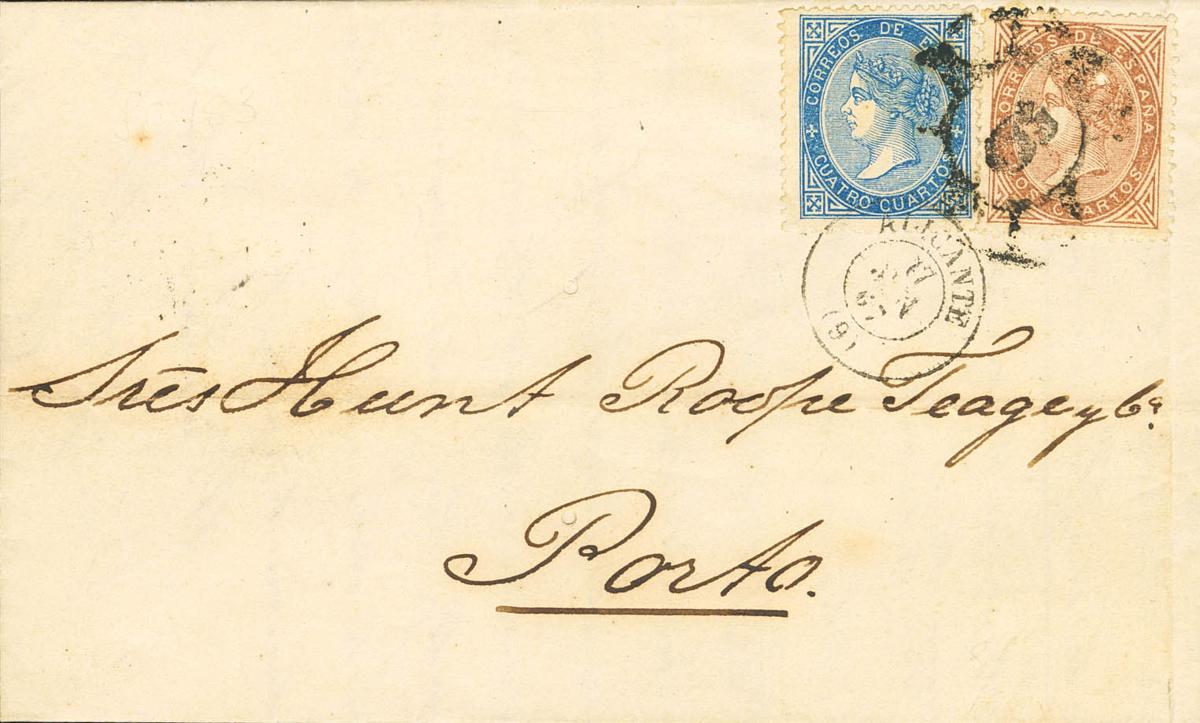 CORREOS DE E
CUATRO CUARTOS
CORREOS DE ESPAÑA
CUARTOS
ALICANTE
17
(6)
Srēs Hunt Roope Teage y Cª.
Porto.